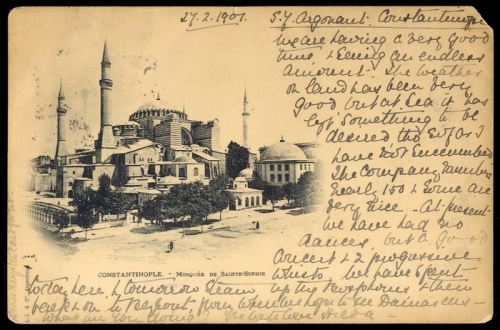 27.2.1901.
S.Y. Argonaut. Constantinople
We are having a very good
time & seeing an endless
amount. The weather
on land has been very
good but at sea it has
left something to be
desired tho' so far I
have not succumbed
The Company numbers
nearly 100 & some are
very nice. At present
we have had no
dances, but a good
concert & 2 progressive
whists. We have spent
today here & tomorrow steam up the Bosphorus & then
before on to Beyrout, from where we hope to see Damascus
What are you doing? Hilda
CONSTANTINOPLE. - MOSQUÉE DE SAINTE-SOPHIE